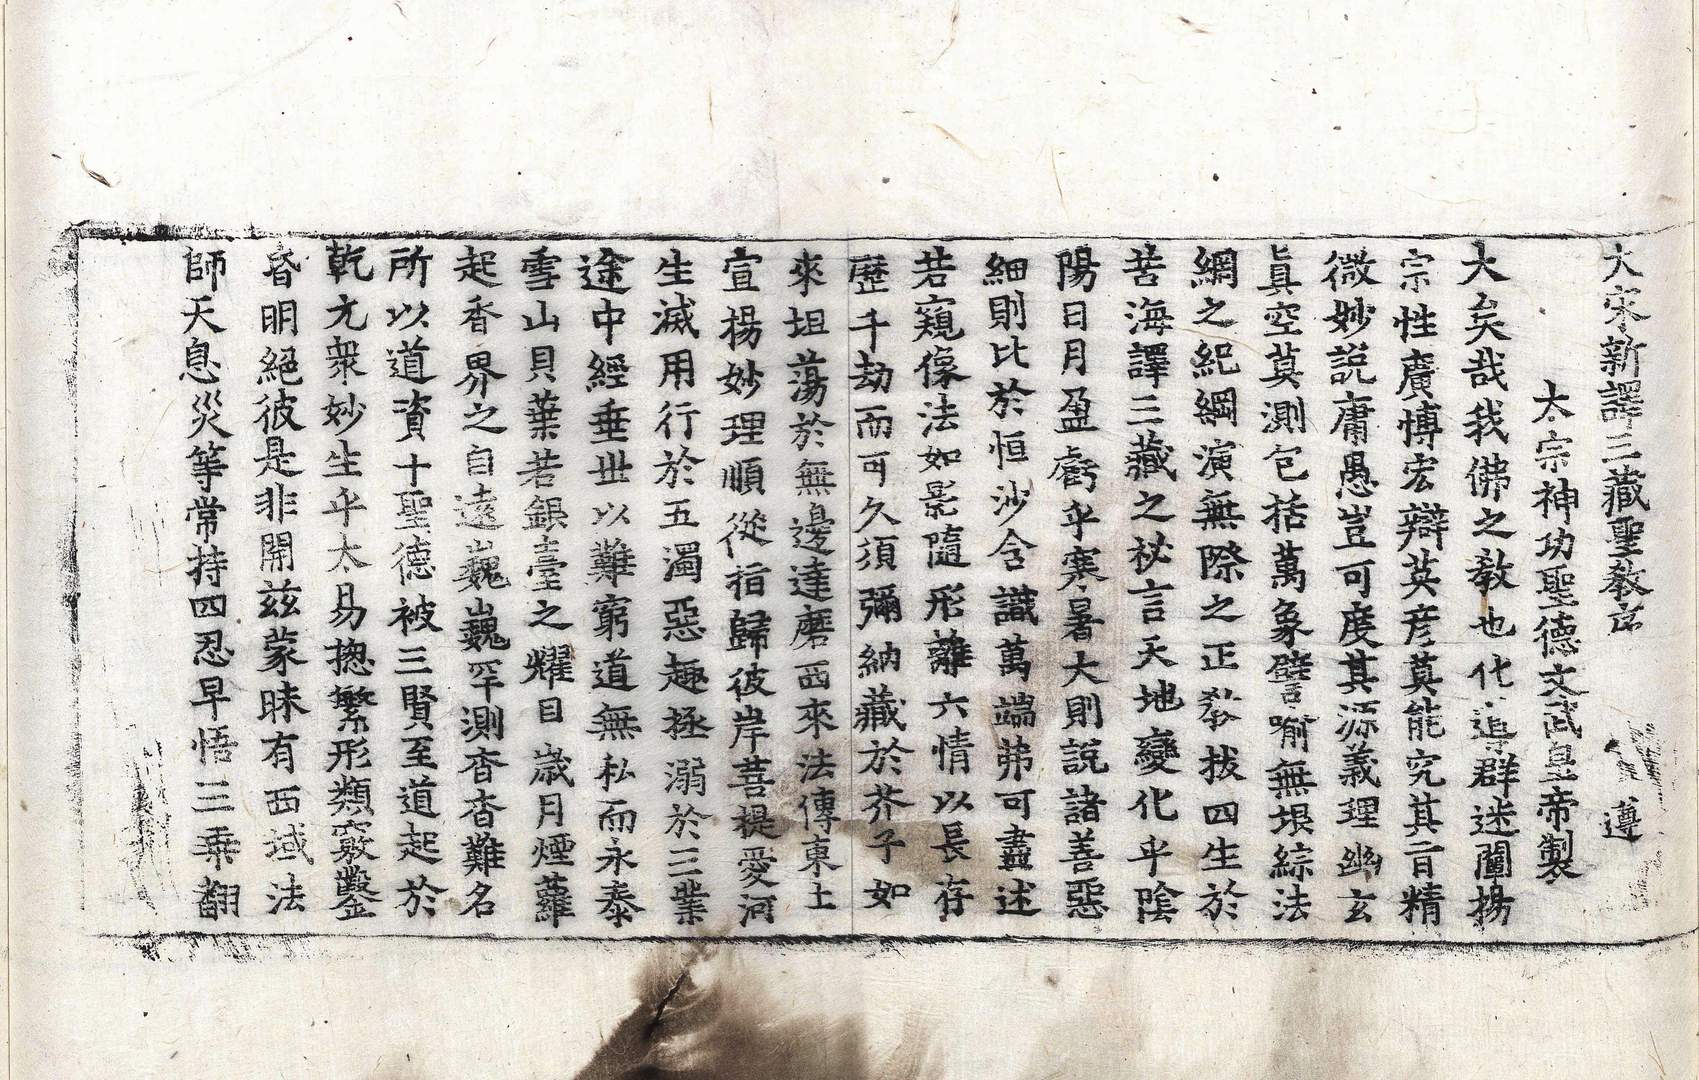 大宋新譯三藏聖教序 遵
太宗神功聖德文武皇帝製
大矣哉我佛之教也化導群迷闡揚
宗性廣博宏辯英彦莫能究其旨精
微妙説庸愚豈可度其源義理幽玄
真空莫測包括萬象譬喻無垠綜法
網之紀綱演無際之正教拔四生於
苦海譯三藏之祕言天地變化乎陰
陽日月盈虧乎寒暑大則説諸善惡
細則比於恒沙含識萬端弗可盡述
若窺像法如影隨形離六情以長存
歷千劫而可久須彌納藏於芥子如
來坦蕩於無邊達磨西來法傳東土
宣揚妙理順從指歸彼岸菩提愛河
生滅用行於五濁惡趣拯溺於三業
途中經垂丗以難窮道無私而永泰
雪山貝葉若銀臺之耀目歳月煙蘿
起香界之自遠巍巍罕測杳杳難名
所以道資十聖德被三賢至道起於
乾元衆妙生乎太易揔繁形類竅鑿
昏明絕彼是非開兹蒙昧有西域法
師天息災等常持四忍早悟三乗翻